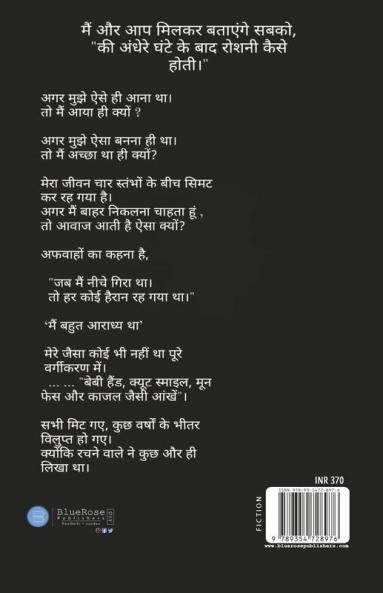 मैं और आप मिलकर बताएंगे सबको,
"की अंधेरे घंटे के बाद रोशनी कैसे
होती।"
अगर मुझे ऐसे ही आना था।
तो मैं आया ही क्यों ?
अगर मुझे ऐसा बनना ही था।
तो मैं अच्छा था ही क्यों?
मेरा जीवन चार स्तंभों के बीच सिमट
कर रह गया है।
अगर मैं बाहर निकलना चाहता हूं ,
तो आवाज आती है ऐसा क्यों?
अफवाहों का कहना है,
"जब मैं नीचे गिरा था।
तो हर कोई हैरान रह गया था।"
‘मैं बहुत आराध्य था’
मेरे जैसा कोई भी नहीं था पूरे
वर्गीकरण में।
... ... "बेबी हैंड, क्यूट स्माइल, मून
फेस और काजल जैसी आंखें"।
सभी मिट गए, कुछ वर्षों के भीतर
विलुप्त हो गए।
क्योंकि रचने वाले ने कुछ और ही
लिखा था।
INR 370
FICTION
ISBN 978-93-5472-897-6
9 789354 728976
www.bluerosepublishers.com
BlueRose
Publishers
NewDelhi • London